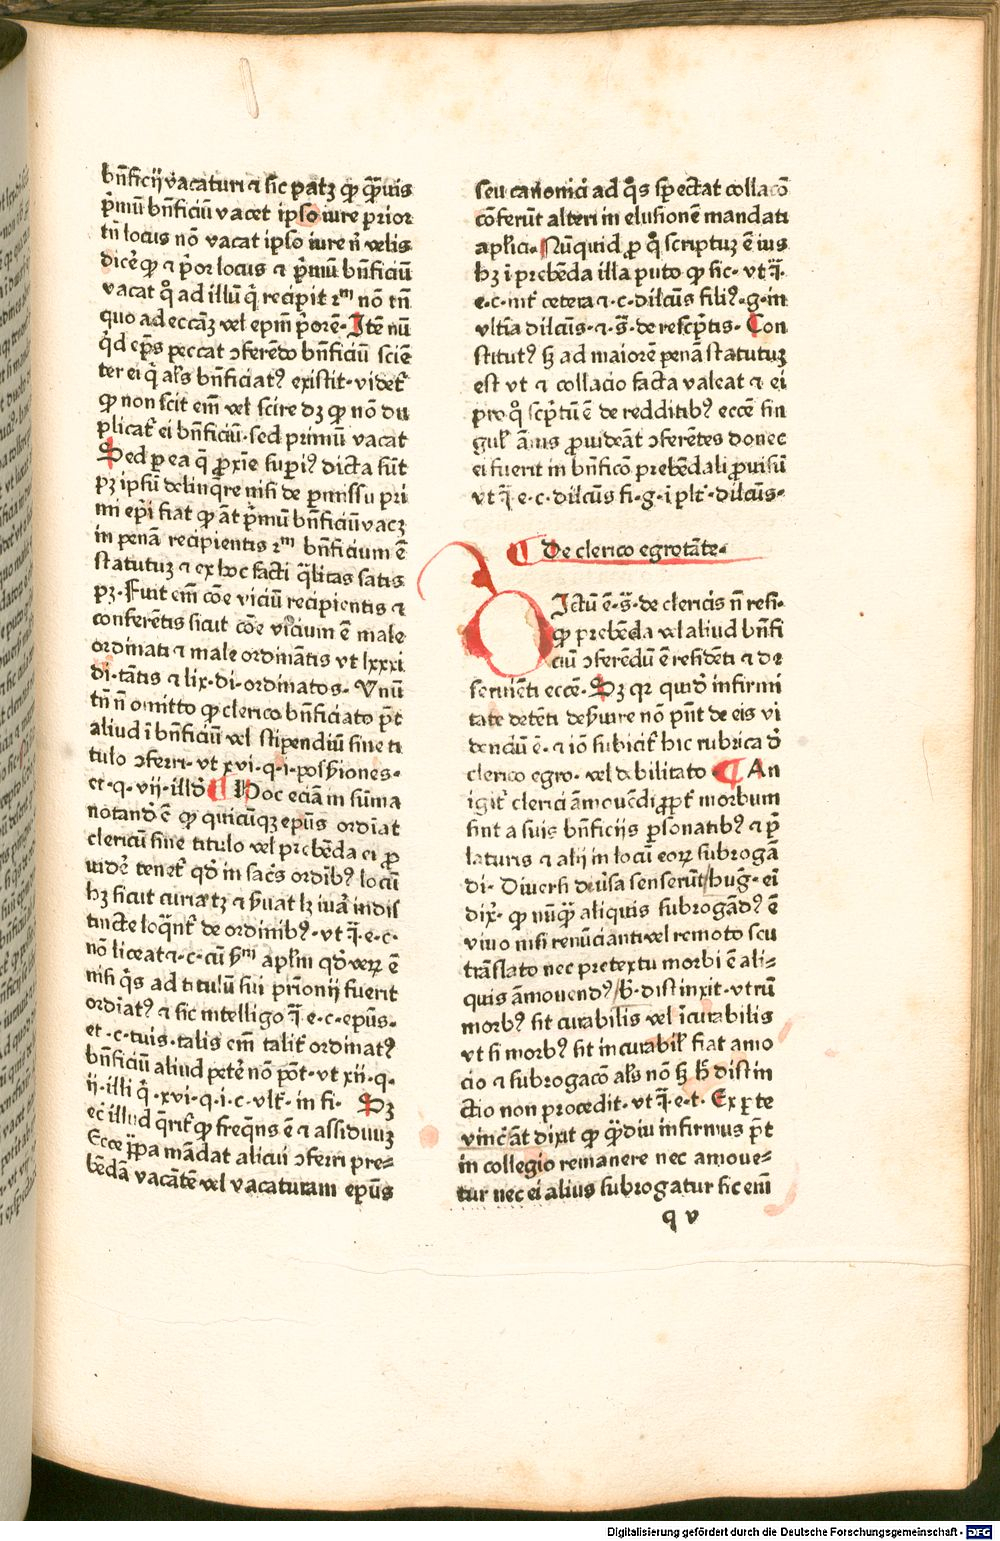 bn̄ficij vacaturi ⁊ sic patꝫ ꝙ q̄ꝫuis
p̄mū bn̄ficiū vacet ipso iure prior
tn̄ locus nō vacat ipso iure n̄ velis
dicē ꝙ ⁊ p̄or locus ⁊ p̄mū bn̄ficiū
vacat qͦ ad illū q̄ recipit 2ᵐ nō tn̄
quo ad eccāꝫ vel epm̄ p̄orē· Itē nū
qͥd ep̄s peccat ɔferēdo bn̄ficiū sciē
ter ei qͥ al̄s bn̄ficiatꝰ existit· videt̄
ꝙ non scit em̄ vel scire dꝫ ꝙ nō du
plicat̄ ei bn̄ficiū· sed primū vacat
Sed ꝑ ea q̄ ꝓxīe suꝑiꝰ dicta sūt
pꝫ ipsū delinq̄re nisi de ꝑmissu pri
mi ep̄i fiat ꝙ āt p̄mū bn̄ficiū vacꝫ
in penā recipientis 2ᵐ bn̄ficium ē
statutuꝫ ⁊ ex hoc facti q̄litas satis
pꝫ· Fuit em̄ cōe viciū recipientis ⁊
conferētis sicut cōe vicium ē male
ordinati ⁊ male ordināntis vt lxxxi
di· tātis ⁊ lix· di· ordinatos· Vnū
tn̄ n̄ omitto ꝙ clerico bn̄ficiato p̄t
aliud ī bn̄ficiū vel stipendiū sine ti
tulo ɔferri· vt xvi· q· i· possōiones·
et· q· vij· illd̄ ¶ Hoc eciā in sūma
notand̄ ē ꝙ quicūqꝫ epūs ordīat
clericū sine titulo vel prebēda ei ꝓ
uidē tenet̄ qd̄ in sac̄s ordībꝰ locū
hꝫ sicut curiæ tꝫ ⁊ p̄uat lꝫ iuā indis
tincte loq̄nt̄ de ordinibꝰ· vt q̄· e· c·
nō liceat ⁊· c· cū sᵐ apl̄m qd̄ veꝝ ē
nisi qͥs ad titulū sui prīonij fuerit
ordīatꝰ ⁊ sic intelligo q̄· e· c· epūs·
et· c· tuis· talis em̄ talit̄ ordinatꝰ
bn̄ficiū aliud petē nō pōt· vt xij· q·
ij· illi qͥ· xvi· q· i· c· vlt̄· in fi· Sꝫ
ec̄ illud q̄rit̄ ꝙ freq̄ns ē ⁊ assiduuꝫ
Ecce p̄pa mādat alicui ɔferri pre⸗
bēdā vacātē vel vacaturam epūs
seu canonici ad qͦs spectat collacō
cōferūt alteri in elusionē mandati
aplici· Nūquid ꝓ qͦ scriptuꝫ ē ius
hꝫ ī prebēda illa puto ꝙ sic· vt q̄·
e· c· int̄ cetera ⁊· c· dilc̄us filiꝰ· g· in
vltīa dilc̄us· ⁊· s̄· de resc̄ptis· Con
stitutꝰ sꝫ ad maiorē penā statutuꝫ
est vt ⁊ collacio facta valeat ⁊ ei
pro qͦ sc̄ptū ē de redditibꝰ eccē sin
gul̄ ānis ꝓuideāt ɔferētes donec
ei fuerit in bn̄ficō prebēdali ꝓuisū
vt q̄ e· c· dilc̄us fi· g· i plt̄· dilc̄us·
¶ De clerico egrotāte·
DIctū ē· s̄· de clericis n̄ resi·
ꝙ prebēda vel aliud bn̄fi
ciū ɔferēdū ē residēti ⁊ de
seruiēti eccē· Sꝫ qꝛ quid̄ infirmi
tate detēti deẜuire nō pn̄t de eis vi
dendū ē· ⁊ iō subicit̄ hic rubrica d̄
clerico egro· vel debilitato ¶ An
igit̄ clerici āmouēdi ꝓpt̄ morbum
sint a suis bn̄ficijs ꝑsonatibꝰ ⁊ p̄
laturis ⁊ alij in locū eoꝝ subrogā
di· Diuersi diūsa senserūt huḡ· ei
dix̄· ꝙ nūq̄ꝫ aliquis subrogādꝰ ē
viuo nisi renūcianti vel remoto seu
trāslato nec pretextu morbi ē ali⸗
quis āmouendꝰ b̄· distinxit· vtrū
morbꝰ sit curabilis vel īcurabilis
vt si morbꝰ sit incurabil̄ fiat amo
cio ⁊ subrogacō al̄s nō sꝫ h̄ distin
ctio non procedit· vt q̄· e· t· Ex ꝑte
vinc̄ āt dixit ꝙ q̄ꝫdiu infirmus p̄t
in collegio remanere nec amoue⸗
tur nec ei alius subrogatur sic em̄
q v
Digitalisierung gefördert durch die Deutsche Forschungsgemeinschaft - DFG